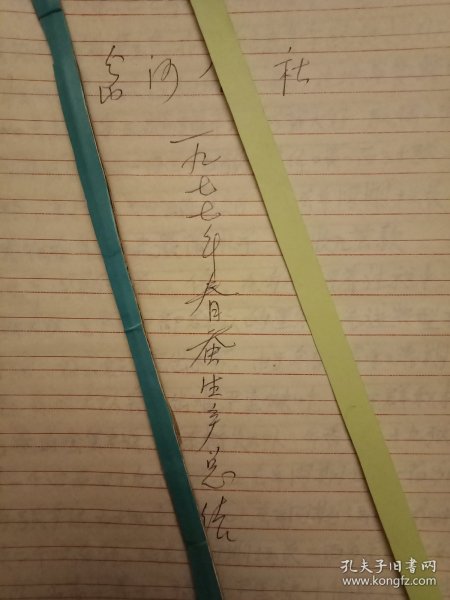 河 社
一九七七年春蚕生产总结
孔夫子旧书网
www.kongfz.com